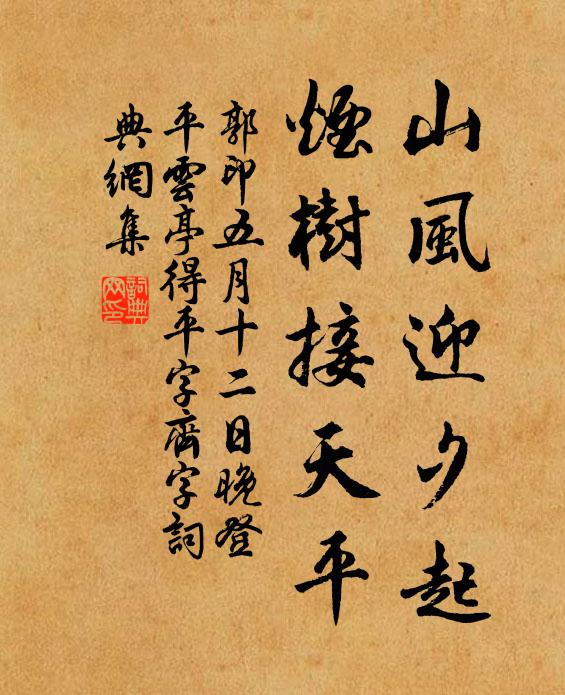 山風迎夕起
煙樹接天平
郭印五月十二日晚登
平雲亭得平字齊字詞
典網集
詞典
网印